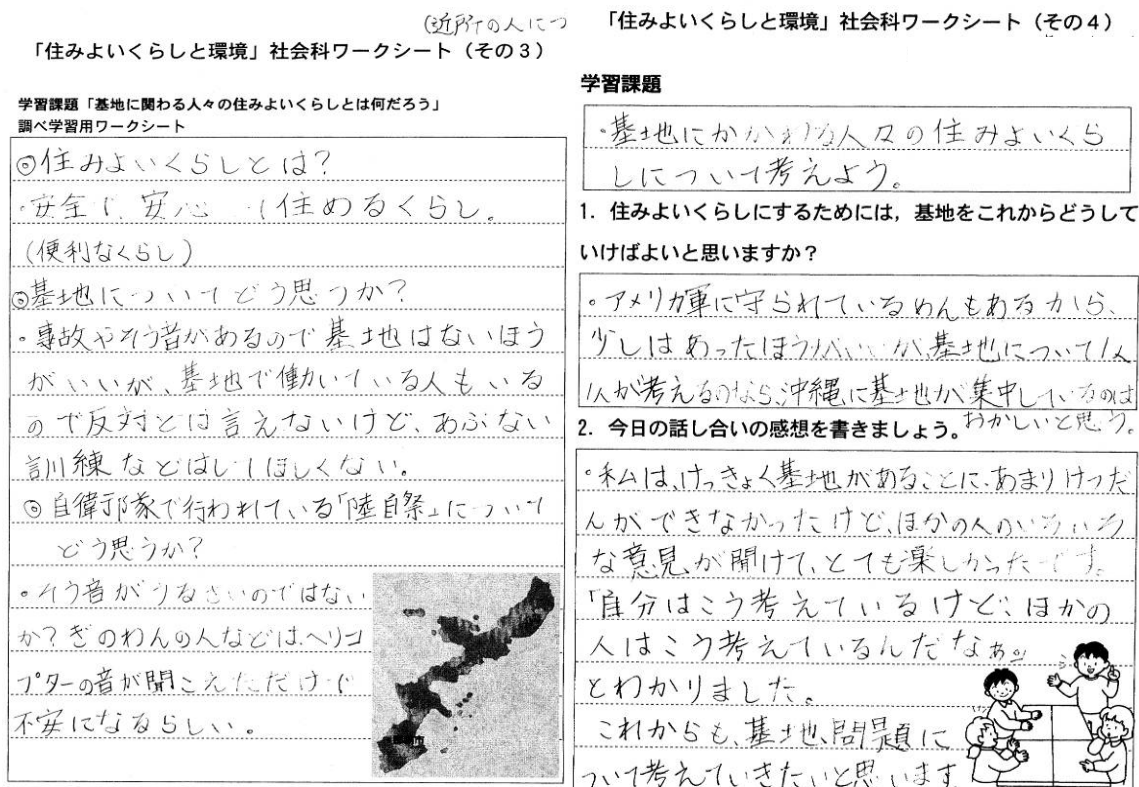 (近所の人につ
「住みよいくらしと環境」社会科ワークシート（その３）
学習課題「基地に関わる人々の住みよいくらしとは何だろう」
調べ学習用ワークシート
◎住みよいくらしとは？
・安全で、安心して住めるくらし。
(便利なくらし)
◎基地についてどう思うか？
・事故やそう音があるので基地はないほう
がいいが、基地で働いている人もいる
ので反対とは言えないけど、あぶない
訓練などはしてほしくない。
◎自衛隊で行われている「陸自祭」について
どう思うか？
・そう音がうるさいのではない
か？ぎのわんの人などは、ヘリコ
プターの音が聞こえただけで
不安になるらしい。
「住みよいくらしと環境」社会科ワークシート（その４）
学習課題
・基地にかかわる人々の住みよいくら
しについて考えよう。
1．住みよいくらしにするためには，基地をこれからどうして
いけばよいと思いますか？
・アメリカ軍に守られているめんもあるから、
少しはあったほうがいいが、基地について1人
1人が考えるのなら、沖縄に基地が集中しているのは
おかしいと思う。
2．今日の話し合いの感想を書きましょう。
・私は、けっきょく基地があることに、あまりけつだ
んができなかったけど、ほかの人のいろいろ
な意見が聞けて、とても楽しかったです。
「自分はこう考えているけど、ほかの
人はこう考えているんだなぁ。」
とわかりました。
これからも、基地問題に
ついて考えていきたいと思います